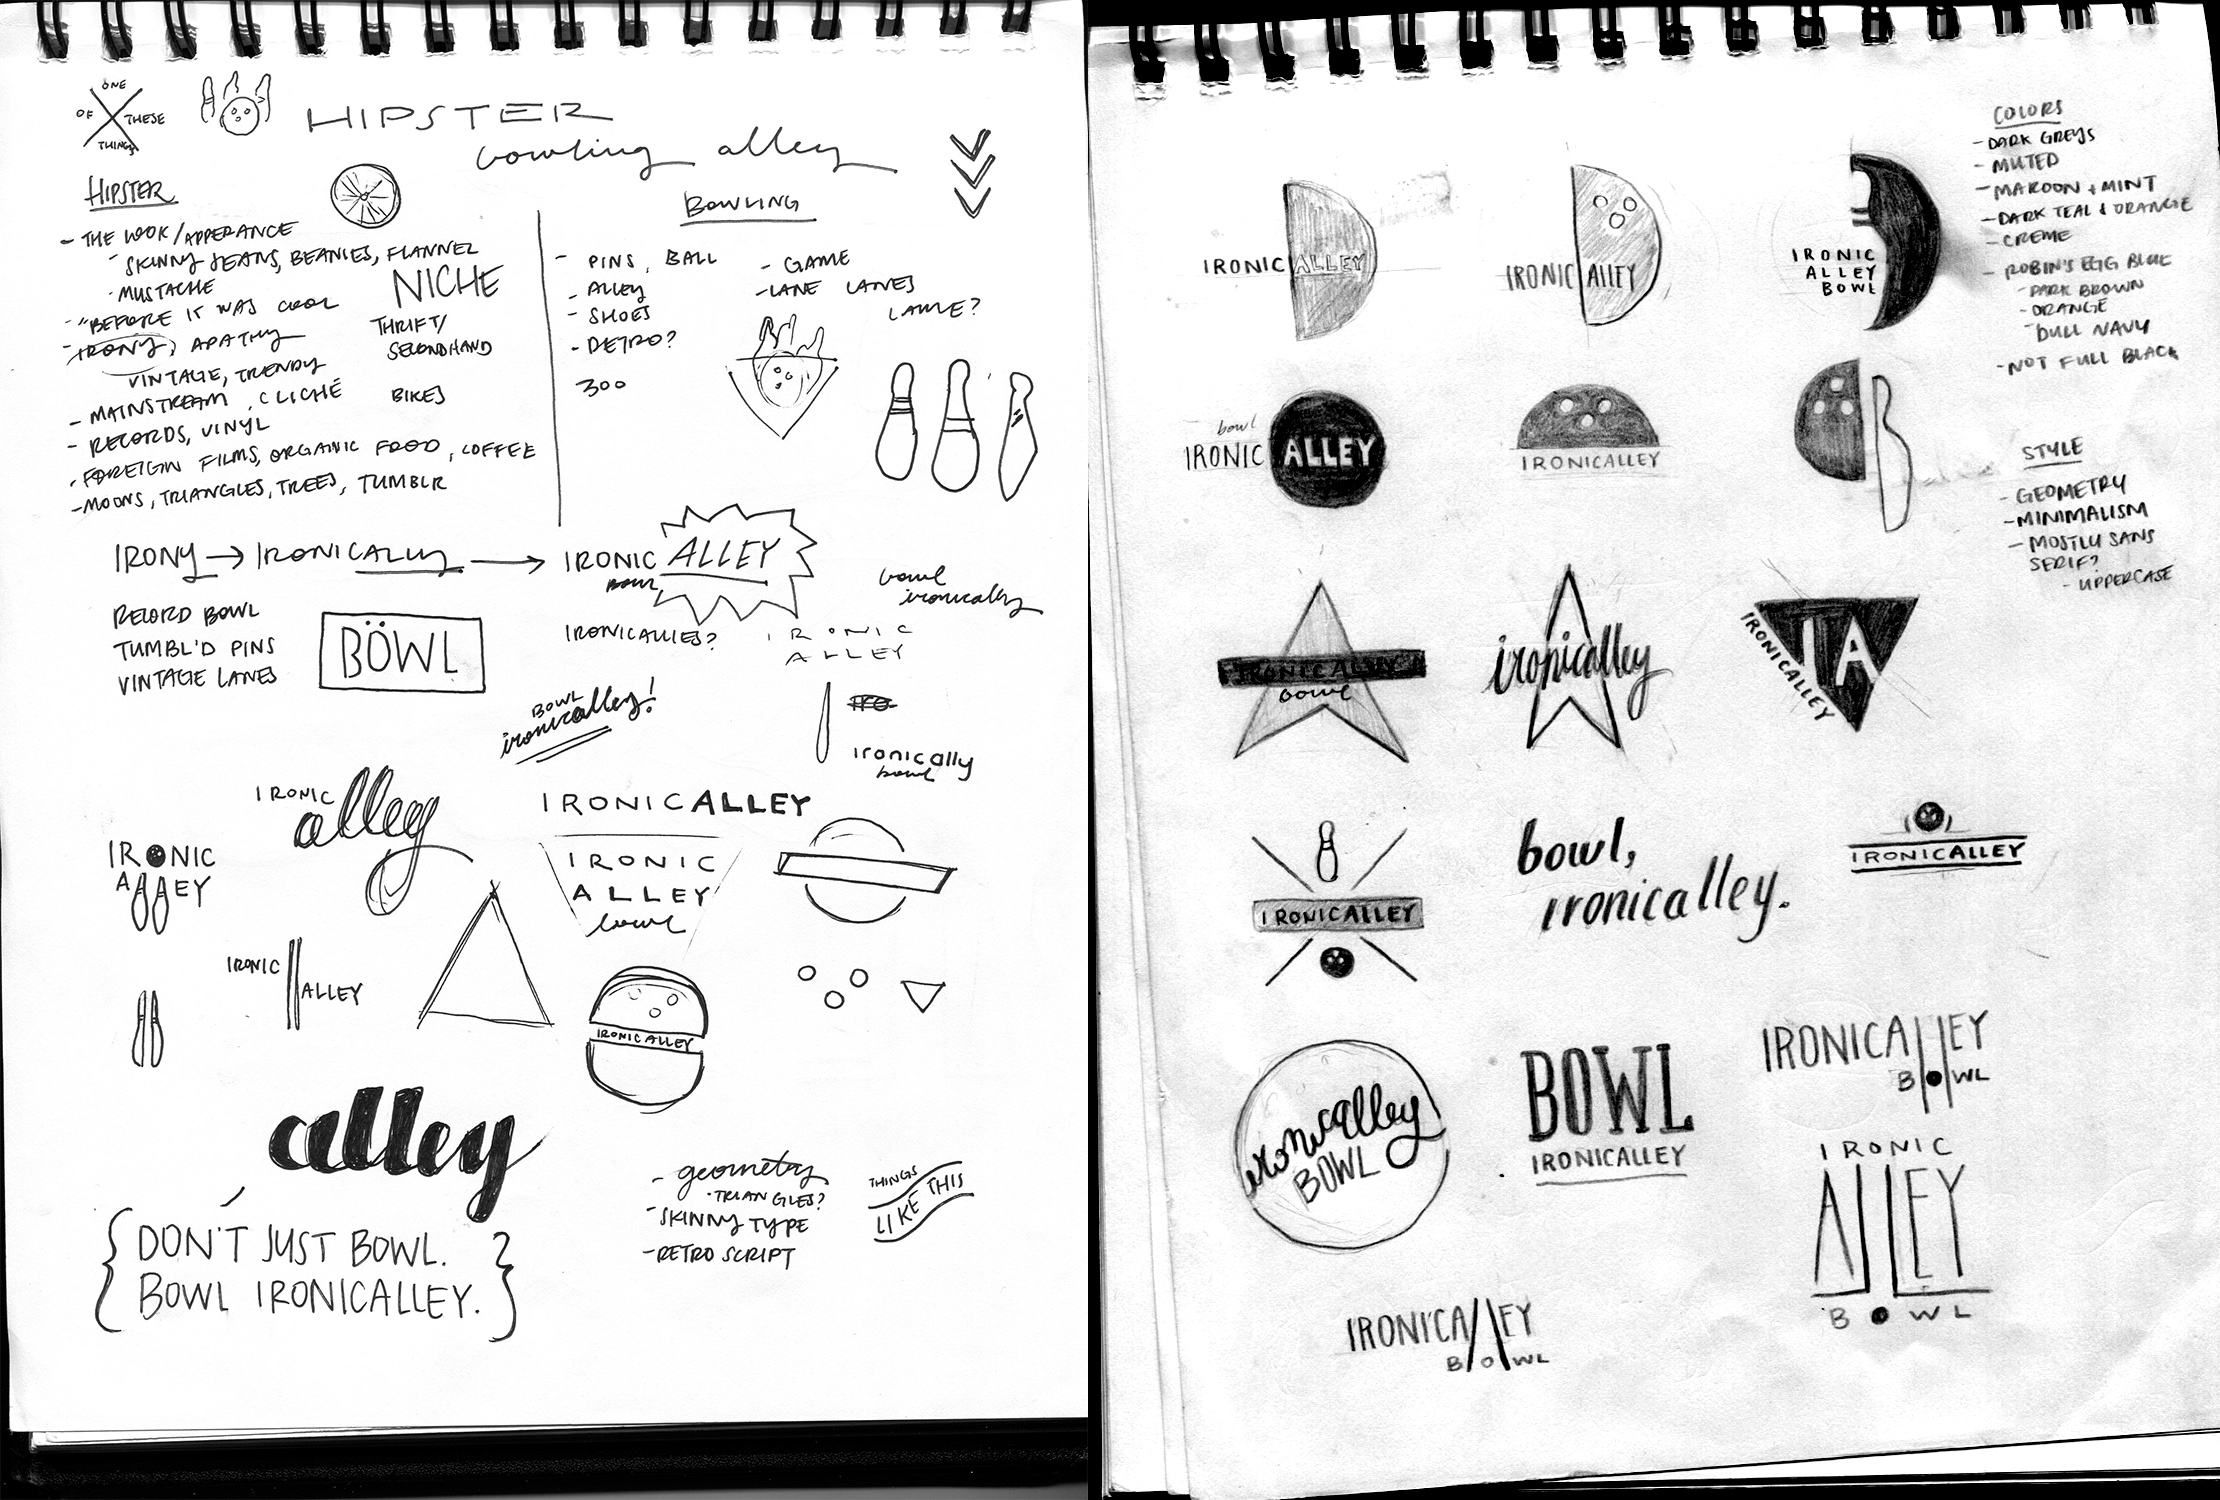 ONE
OF THESE
THINGS
HIPSTER
bowling alley
HIPSTER
- THE LOOK/APPERANCE
- SKINNY JEANS, BEANIES, FLANNEL
- MUSTACHE
- "BEFORE IT WAS COOL
- IRONY, APATHY
VINTAGE, TRENDY
- MAINSTREAM, CLICHÉ
- RECORDS, VINYL
- FOREIGN FILMS, ORGANIC FOOD, COFFEE
- MOONS, TRIANGLES, TREES, TUMBLR
NICHE
THRIFT/
SECONDHAND
BIKES
BOWLING
- PINS, BALL
- ALLEY
- SHOES
- RETRO?
300
- GAME
- LANE LANES
LAME?
IRONY → IRONICALLY → IRONIC ALLEY
BOWL
RECORD BOWL
TUMBL'D PINS
VINTAGE LANES
BÖWL
IRONICALLIES?
bowl
ironically
IRONIC
ALLEY
BOWL
ironicalley!
ironically
bowl
IRONIC
alley
IRONICALLEY
IRONIC
ALLEY
IRONIC
ALLEY
bowl
IRONIC
ALLEY
IRONICALLEY
alley
DON'T JUST BOWL.
BOWL IRONICALLEY.
- geometry
- TRIANGLES?
- SKINNY TYPE
- RETRO SCRIPT
THINGS
LIKE THIS
COLORS
- DARK GREYS
- MUTED
- MAROON + MINT
- DARK TEAL & ORANGE
- CREME
- ROBIN'S EGG BLUE
- DARK BROWN
- ORANGE
- DULL NAVY
- NOT FULL BLACK
STYLE
- GEOMETRY
- MINIMALISM
- MOSTLY SANS
SERIF?
- UPPERCASE
IRONIC ALLEY
IRONIC ALLEY
IRONIC
ALLEY
BOWL
bowl
IRONIC ALLEY
IRONICALLEY
IRONICALLEY
bowl
ironicalley
IA
IRONICALLEY
IRONICALLEY
IRONICALLEY
bowl,
ironicalley.
IRONICALLEY
ironicalley
BOWL
BOWL
IRONICALLEY
IRONICALLEY
BOWL
IRONIC
ALLEY
BOWL
IRONICALLEY
BOWL